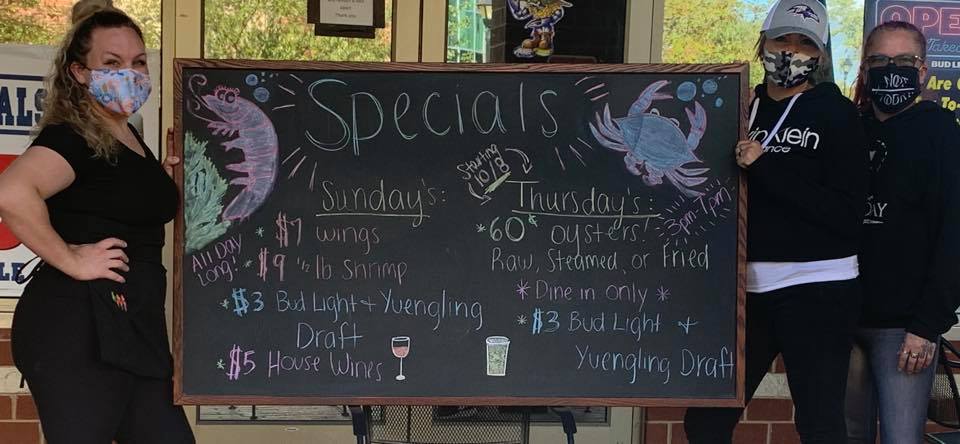 Specials
Starting
10/8
Sunday's:
All Day
Long!
* $7 wings
* $9 1/2 lb. Shrimp
* $3 Bud Light + Yuengling
Draft
* $5 House Wines
Thursday's:
3pm-7pm
* 60¢ oysters!
Raw, Steamed, or Fried
* Dine in only *
* $3 Bud Light +
Yuengling Draft
Thank you
RAVENS
Klein
NOT
TODAY
OPE
Take
BUD LI
Are
To-
ALS
LE